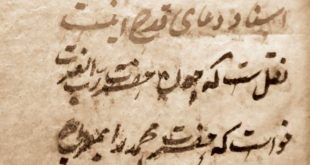 اسناد دعای قدح اینست
نقل است که چون حضرت رب العزت
خواست که حضرت محمد را بمعراج